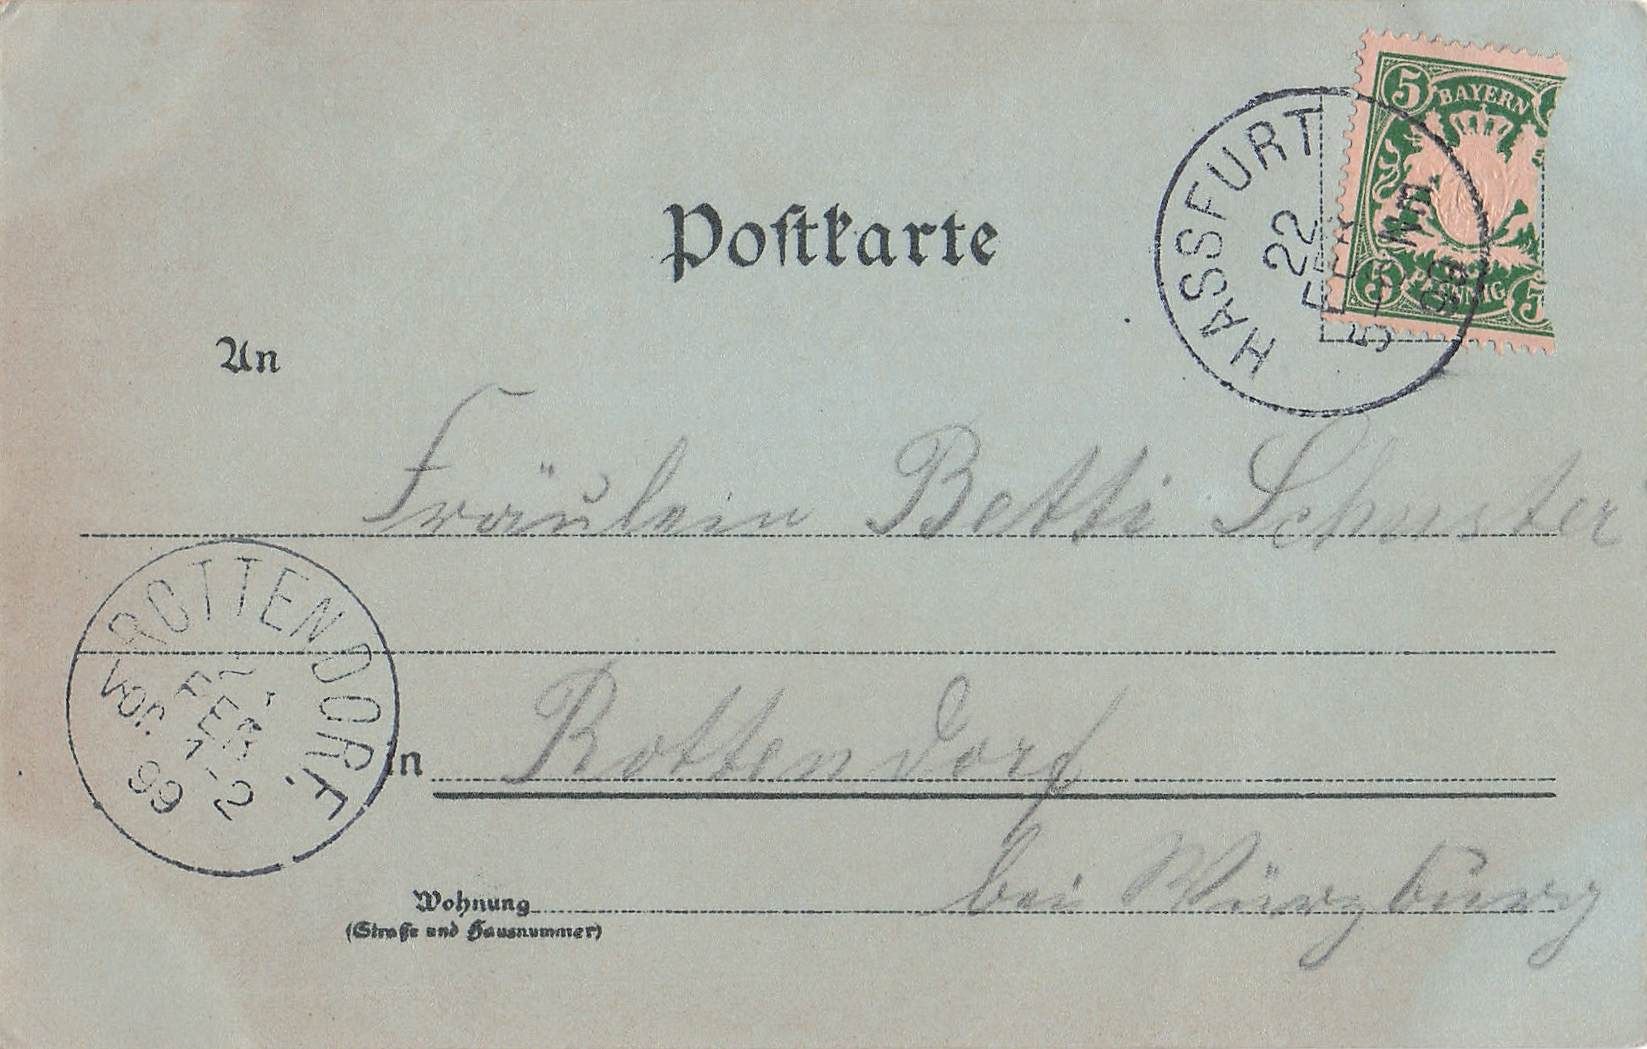 5 BAYERN
5 PFENNIG 5
HASSFURT
22
FEB
5-6 Nm.
99
Postkarte
An
Fräulein Betti Schuster
ROTTENDORF.
FEB
Vor. 7-2
99
in Rottendorf
bei Würzburg
Wohnung
(Straße und Hausnummer)